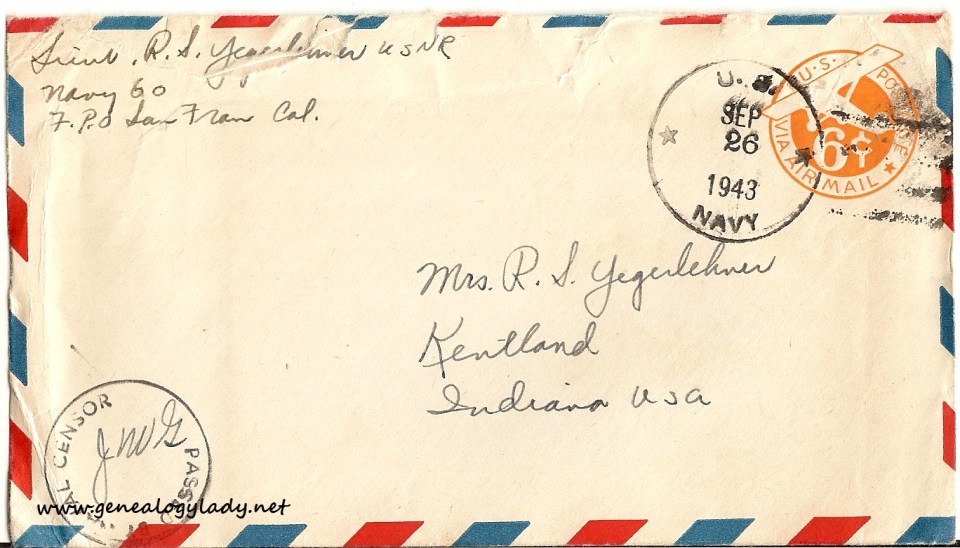 Lieut. R. S. Yegerlehner USNR
Navy 60
F.P.O San Fran Cal.
U.S.
SEP
26
1943
NAVY
U.S. POSTAGE
6¢
VIA AIR MAIL
Mrs. R. S. Yegerlehner
Kentland
Indiana USA
PASSED
BY
CENSOR
JWG
www.genealogylady.net